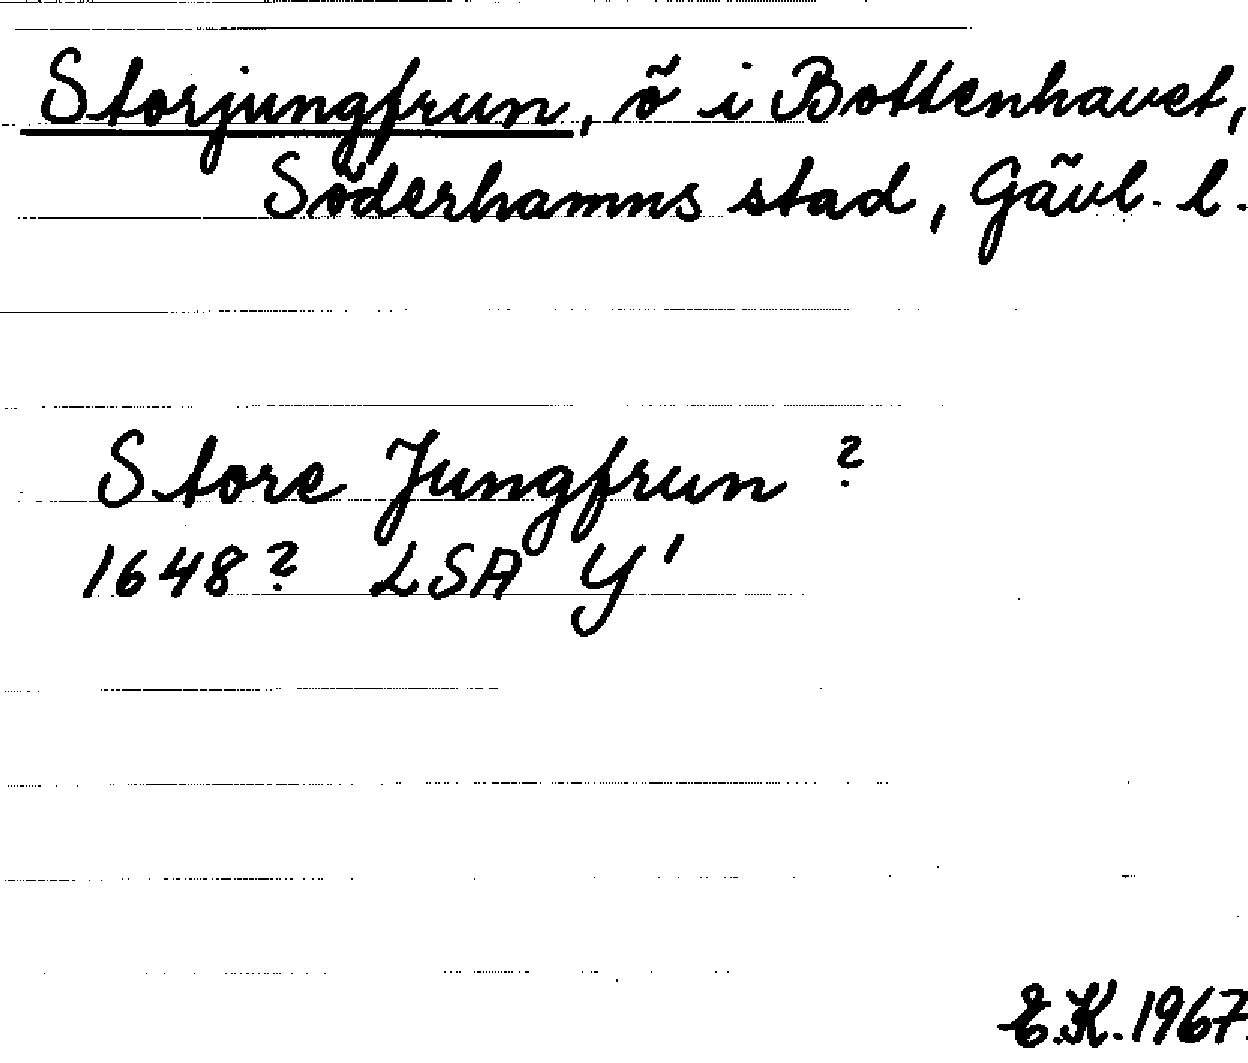 Storjungfrun, ö i Bottenhavet,
Söderhamns stad, Gävl. l.
Store Jungfrun ?
1648? LSA Y'
E.K. 1967.